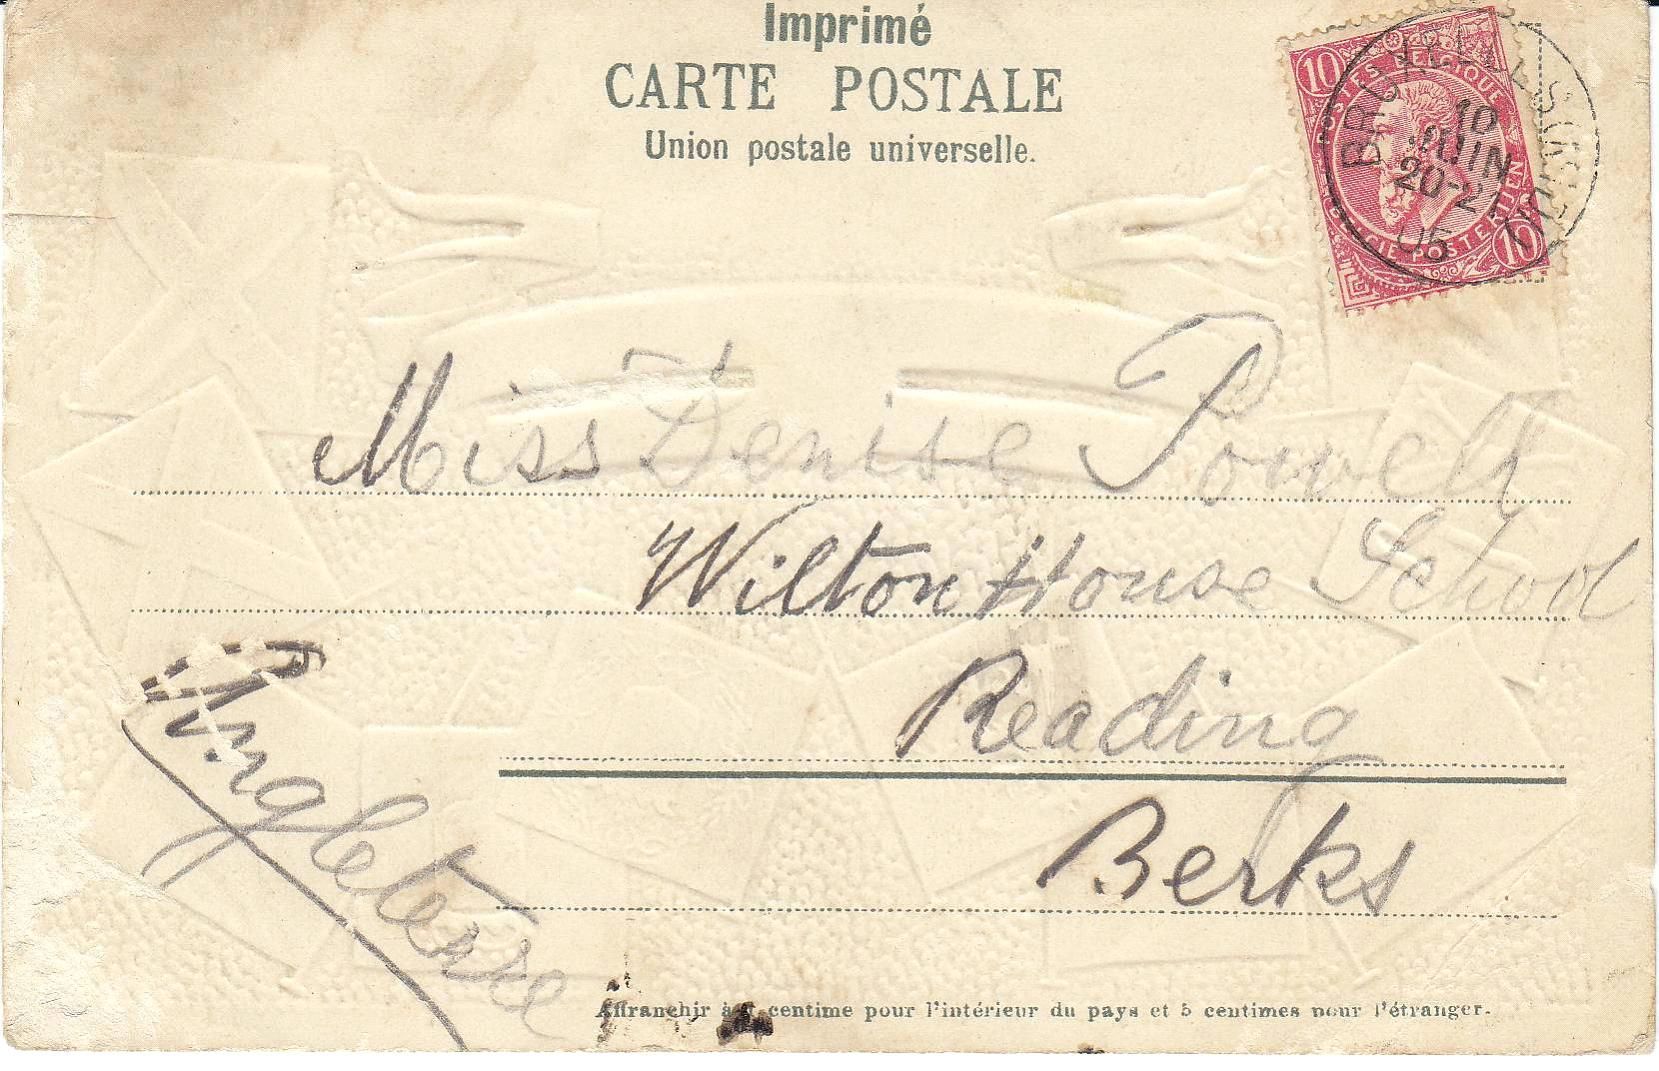 Imprimé
CARTE POSTALE
Union postale universelle.
10 POSTES BELGIQUE
BRUXELLES
10
JUIN
20-21
05
10
Miss Denise Powell
Wilton House School
Reading
Berks
Angleterre
Affranchir à 1 centime pour l'intérieur du pays et 5 centimes pour l'étranger.